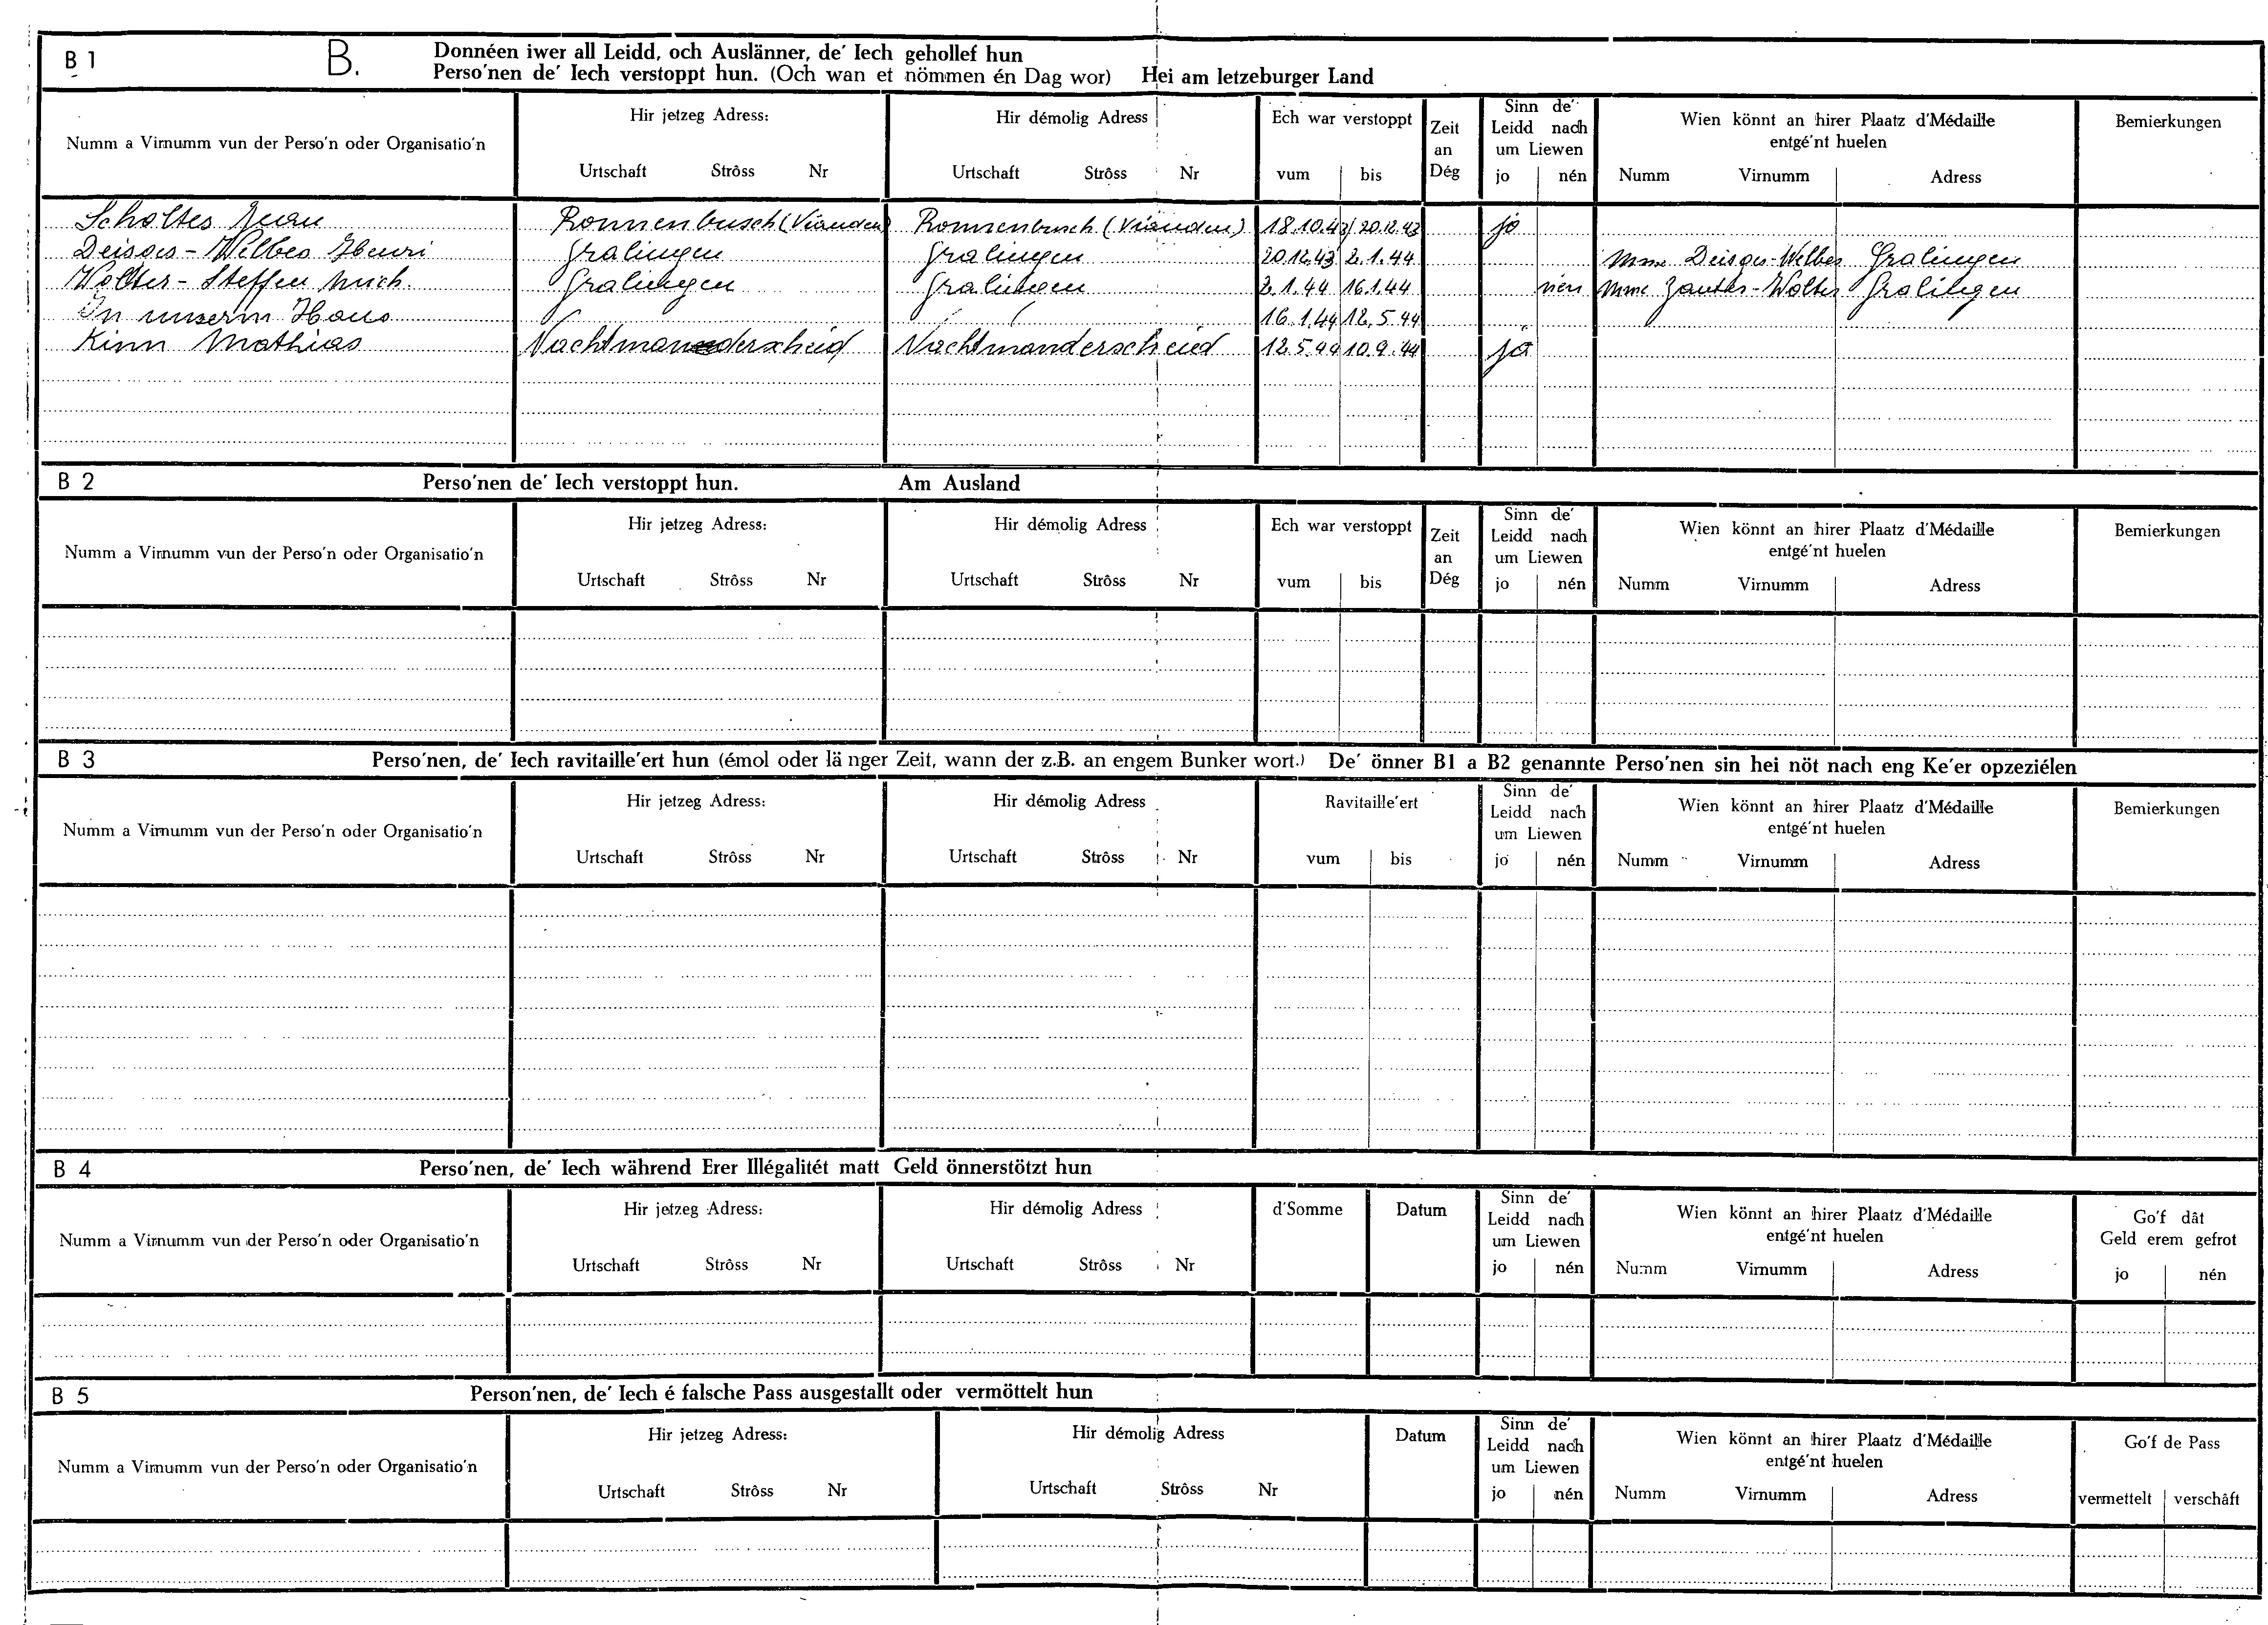 B 1 B. Donnéen iwer all Leidd, och Auslänner, de' Iech gehollef hun
Perso'nen de' Iech verstoppt hun. (Och wan et nömmen én Dag wor) Hei am letzeburger Land
Numm a Virnumm vun der Perso'n oder Organisatio'n
Hir jetzeg Adress:
Urtschaft Strôss Nr
Hir démolig Adress
Urtschaft Strôss Nr
Ech war verstoppt
vum bis
Zeit
an
Dég
Sinn de'
Leidd nach
um Liewen
jo nén
Wien könnt an hirer Plaatz d'Médaille
entgé'nt huelen
Numm Virnumm Adress
Bemierkungen
Scholtes Jean Ronnenbusch (Vianden) Ronnenbusch (Vianden) 18.10.43 20.12.43 jo
Deisges-Welbes Henri Gralingen Gralingen 20.12.43 2.1.44 Mme Deisges-Welbes Gralingen
Wolter-Steffen Mich. Gralingen Gralingen 2.1.44 16.1.44 nén Mme Zanter-Wolter Gralingen
In unserm Haus 16.1.44 12.5.44
Kinn Mathias Nachtmanderscheid Nachtmanderscheid 12.5.44 10.9.44 jo
B 2 Perso'nen de' Iech verstoppt hun. Am Ausland
Numm a Virnumm vun der Perso'n oder Organisatio'n
Hir jetzeg Adress:
Urtschaft Strôss Nr
Hir démolig Adress
Urtschaft Strôss Nr
Ech war verstoppt
vum bis
Zeit
an
Dég
Sinn de'
Leidd nach
um Liewen
jo nén
Wien könnt an hirer Plaatz d'Médaille
entgé'nt huelen
Numm Virnumm Adress
Bemierkungen
B 3 Perso'nen, de' Iech ravitaille'ert hun (émol oder länger Zeit, wann der z.B. an engem Bunker wort.) De' önner B1 a B2 genannte Perso'nen sin hei nöt nach eng Ke'er opzeziélen
Numm a Virnumm vun der Perso'n oder Organisatio'n
Hir jetzeg Adress:
Urtschaft Strôss Nr
Hir démolig Adress
Urtschaft Strôss Nr
Ravitaille'ert
vum bis
Sinn de'
Leidd nach
um Liewen
jo nén
Wien könnt an hirer Plaatz d'Médaille
entgé'nt huelen
Numm Virnumm Adress
Bemierkungen
B 4 Perso'nen, de' Iech während Erer Illégalitét matt Geld önnerstötzt hun
Numm a Virnumm vun der Perso'n oder Organisatio'n
Hir jetzeg Adress:
Urtschaft Strôss Nr
Hir démolig Adress
Urtschaft Strôss Nr
d'Somme
Datum
Sinn de'
Leidd nach
um Liewen
jo nén
Wien könnt an hirer Plaatz d'Médaille
entgé'nt huelen
Numm Virnumm Adress
Go'f dât
Geld erem gefrot
jo nén
B 5 Person'nen, de' Iech é falsche Pass ausgestallt oder vermöttelt hun
Numm a Virnumm vun der Perso'n oder Organisatio'n
Hir jetzeg Adress:
Urtschaft Strôss Nr
Hir démolig Adress
Urtschaft Strôss Nr
Datum
Sinn de'
Leidd nach
um Liewen
jo nén
Wien könnt an hirer Plaatz d'Médaille
entgé'nt huelen
Numm Virnumm Adress
Go'f de Pass
vermettelt verschâft